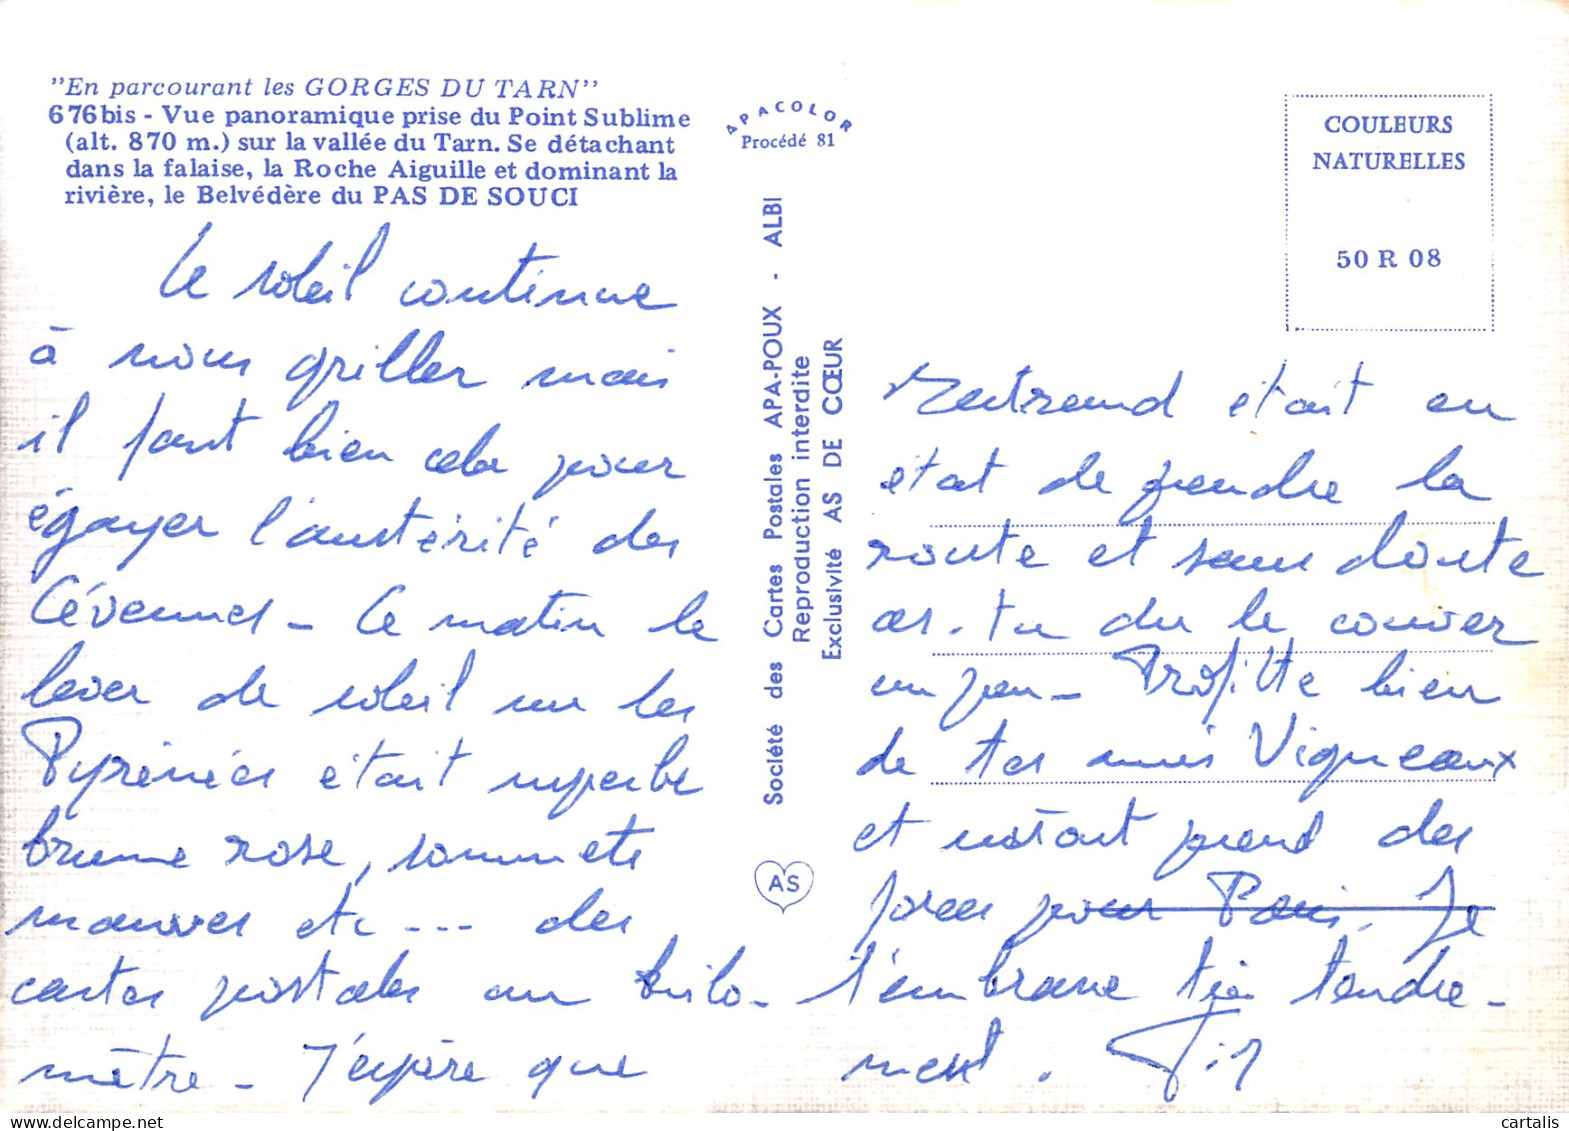 "En parcourant les GORGES DU TARN"
676bis - Vue panoramique prise du Point Sublime
(alt. 870 m.) sur la vallée du Tarn. Se détachant
dans la falaise, la Roche Aiguille et dominant la
rivière, le Belvédère du PAS DE SOUCI
Le soleil continue
à nous griller mais
il faut bien cela pour
égayer l'austérité des
Cévennes - Ce matin le
lever de soleil sur les
Pyrénées était superbe
brume rose, sommets
mauves etc --- des
cartes postales au kilo-
mètre - J'espère que
APACOLOR
Procédé 81
Société des Cartes Postales APA-POUX - ALBI
Reproduction interdite
Exclusivité AS DE CŒUR
AS
COULEURS
NATURELLES
50 R 08
Bertrand était en
état de prendre la
route et sans doute
as-tu du le couver
un peu - Profitte bien
de tes amis Vigneaux
et surtout prend des
forces pour Paris. Je
t'embrasse très tendre-
ment.
cartalis